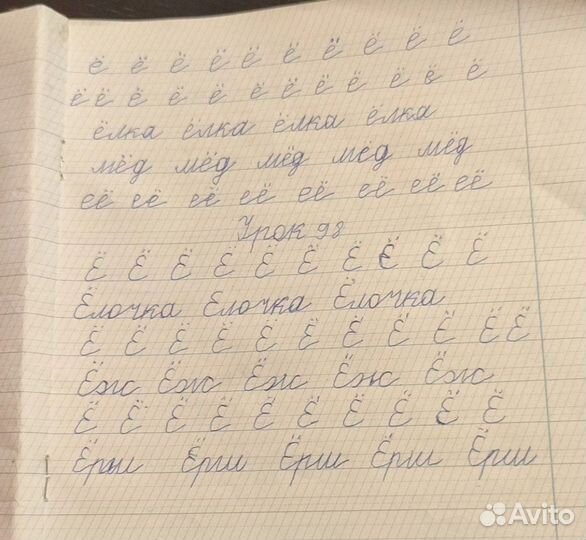 ё ё ё ё ё ё ё ё ё ё
ё ё ё ё ё ё ё ё ё ё ё ё ё
ёлка ёлка ёлка ёлка
мёд мёд мёд мёд мёд
её её её её её её её её
Урок 98
Ё Ё Ё Ё Ё Ё Ё Ё Ё Ё
Ёлочка Ёлочка Ёлочка
Ё Ё Ё Ё Ё Ё Ё Ё Ё Ё Ё
Ёж Ёж Ёж Ёж Ёж
Ё Ё Ё Ё Ё Ё Ё Ё Ё Ё
Ёрш Ёрш Ёрш Ёрш Ёрш
Avito